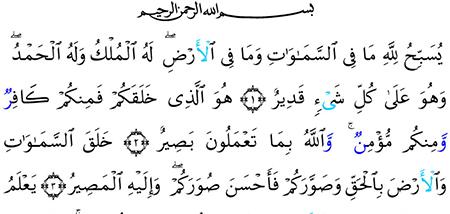 بسم الله الرحمن الرحيم
يُسَبِّحُ لِلَّهِ مَا فِى السَّمَٰوَاتِ وَمَا فِى الْأَرْضِ ۖ لَهُ الْمُلْكُ وَلَهُ الْحَمْدُ ۖ
وَهُوَ عَلَىٰ كُلِّ شَىْءٍ قَدِيرٌ ﴿١﴾ هُوَ الَّذِى خَلَقَكُمْ فَمِنكُمْ كَافِرٌ
وَمِنكُم مُّؤْمِنٌ ۚ وَاللَّهُ بِمَا تَعْمَلُونَ بَصِيرٌ ﴿٢﴾ خَلَقَ السَّمَٰوَاتِ
وَالْأَرْضَ بِالْحَقِّ وَصَوَّرَكُمْ فَأَحْسَنَ صُوَرَكُمْ ۖ وَإِلَيْهِ الْمَصِيرُ ﴿٣﴾ يَعْلَمُ